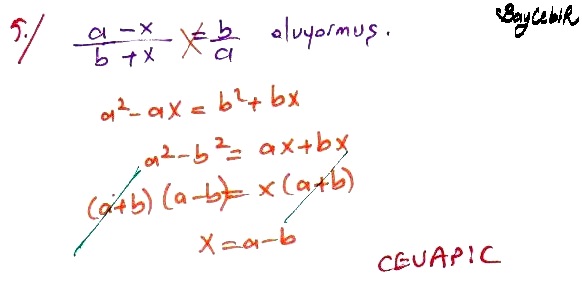 BayCebiR
5./ (a-x)/(b+x) = b/a oluyormuş.
a²-ax = b²+bx
a²-b² = ax+bx
(a+b)(a-b) = x(a+b)
x = a-b
CEVAP C